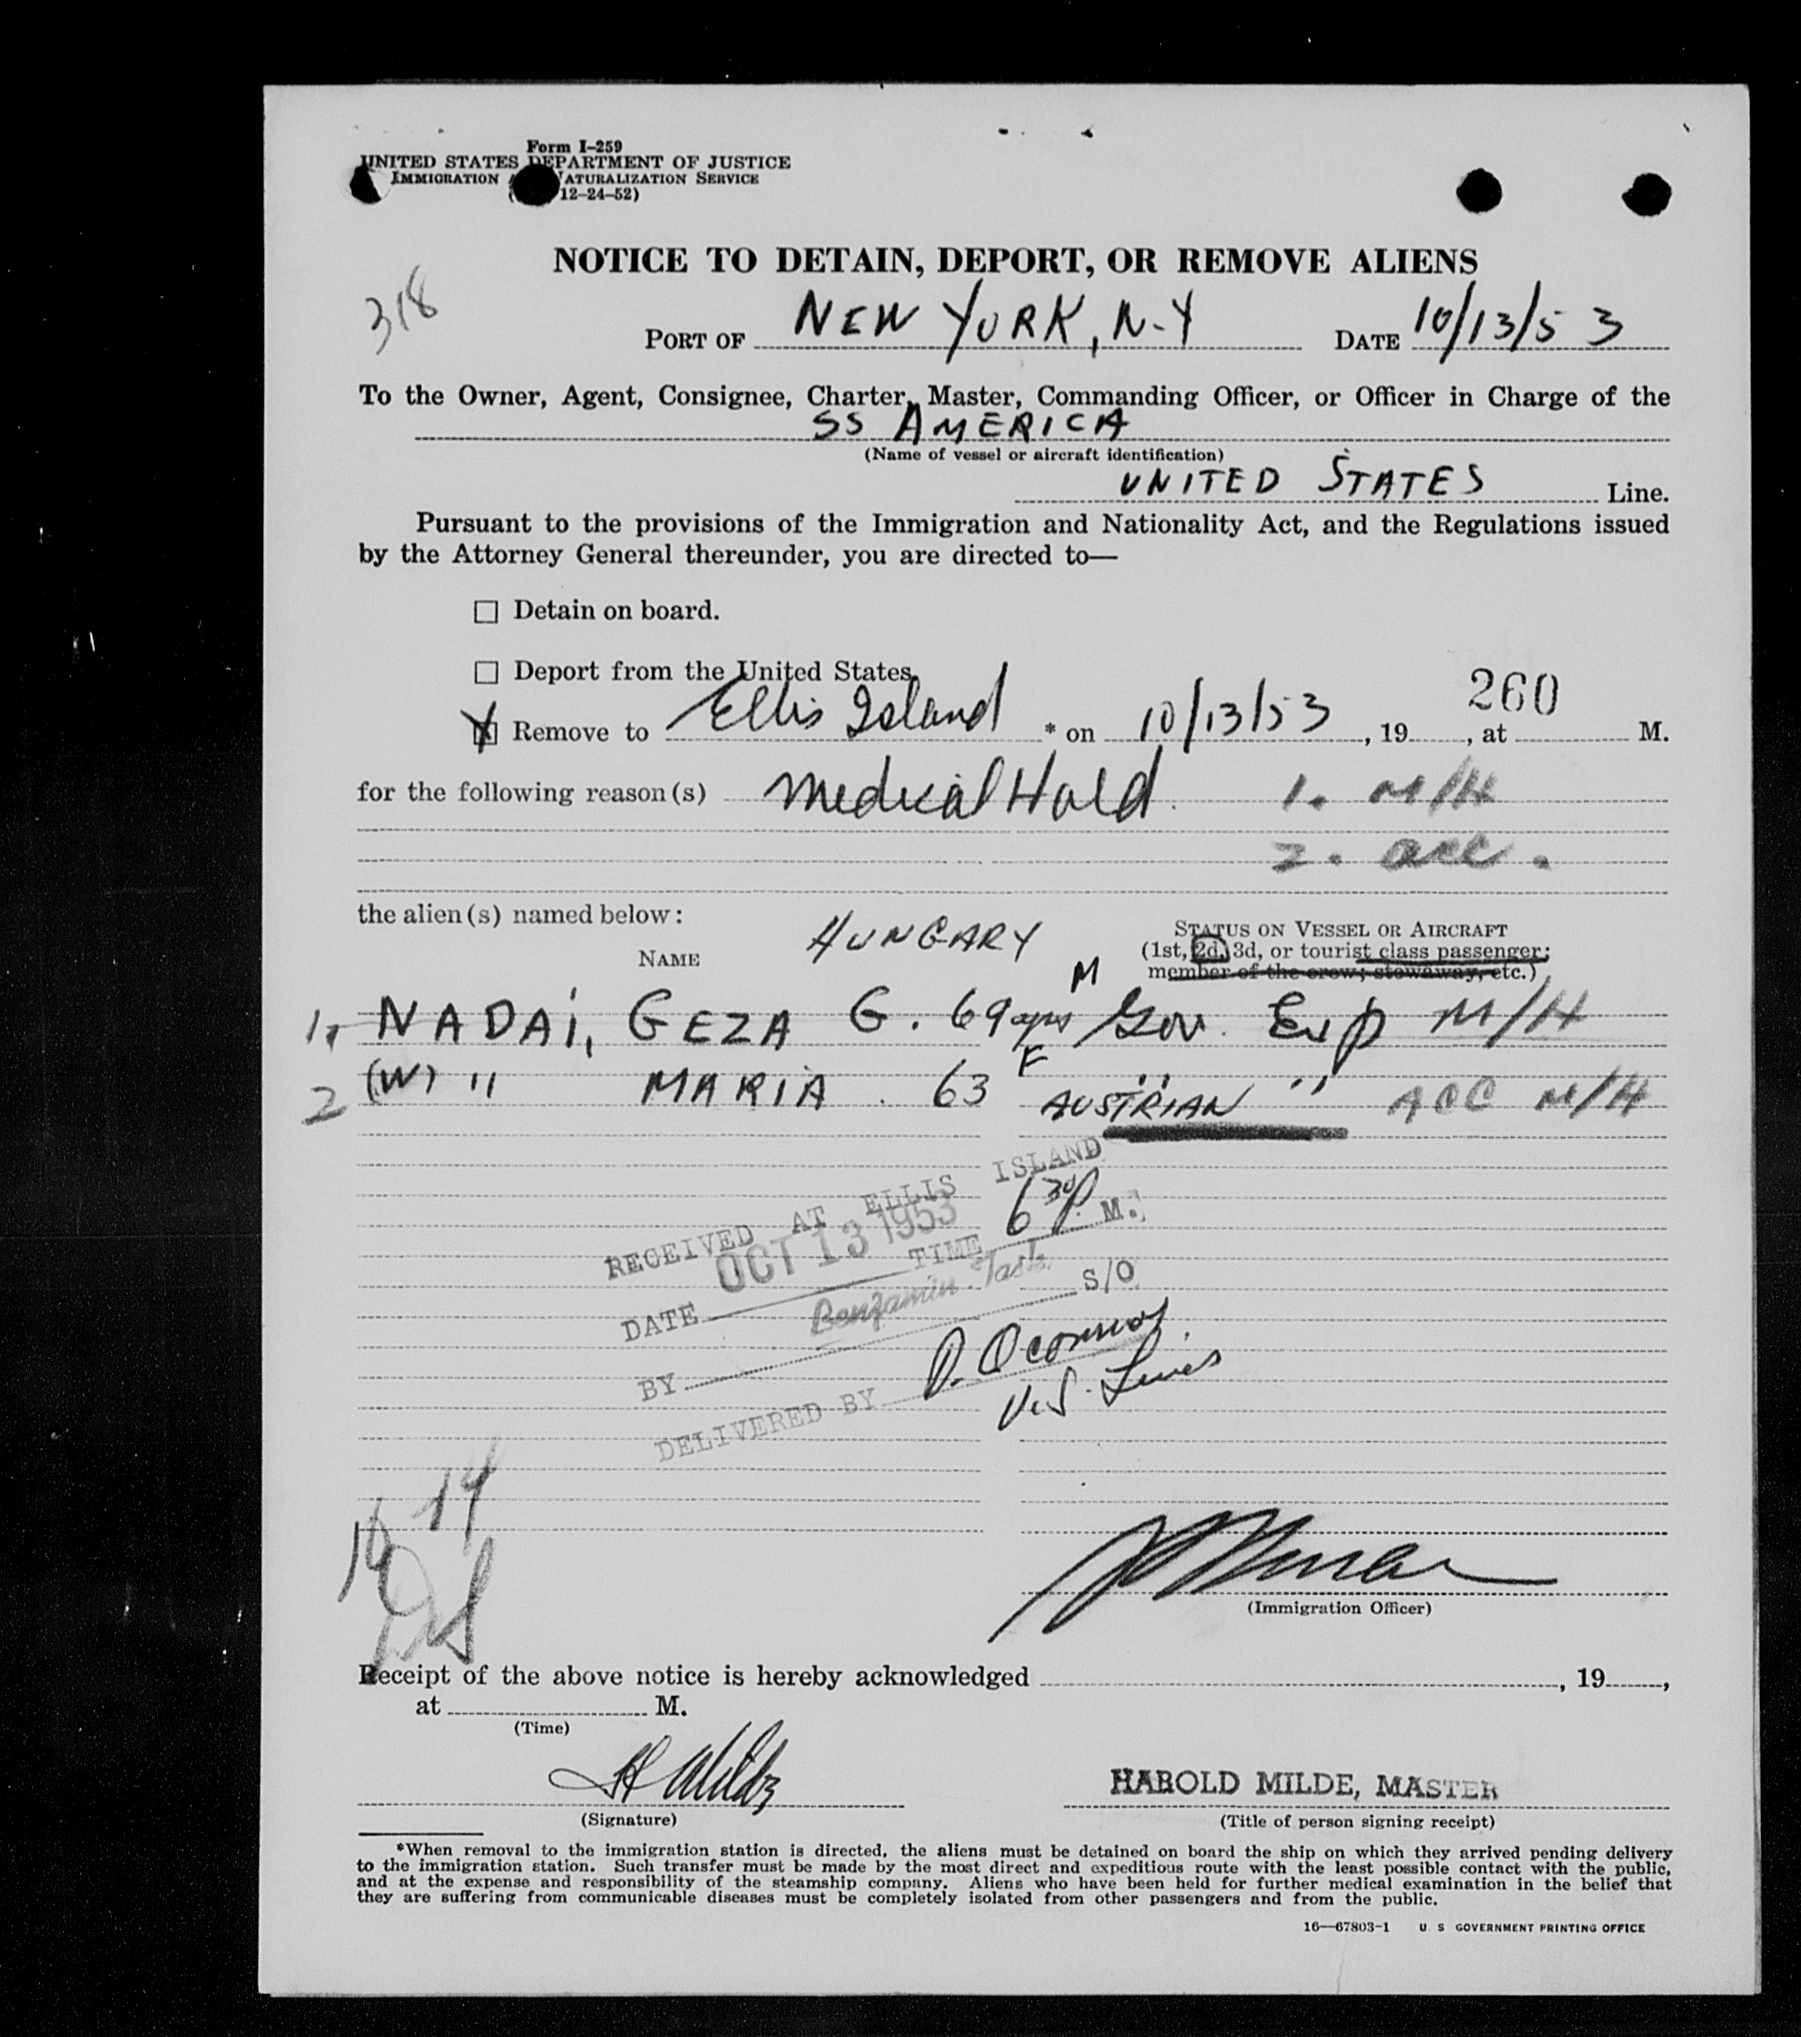 Form I-259
UNITED STATES DEPARTMENT OF JUSTICE
IMMIGRATION NATURALIZATION SERVICE
12-24-52)
NOTICE TO DETAIN, DEPORT, OR REMOVE ALIENS
318
PORT OF NEW YORK, N.Y DATE 10/13/53
To the Owner, Agent, Consignee, Charter, Master, Commanding Officer, or Officer in Charge of the
SS AMERICA
(Name of vessel or aircraft identification)
UNITED STATES Line.
Pursuant to the provisions of the Immigration and Nationality Act, and the Regulations issued
by the Attorney General thereunder, you are directed to—
Detain on board.
Deport from the United States.
260
X Remove to Ellis Island * on 10/13/53, 19, at M.
for the following reason(s) Medical Hold. 1. M/H
2. acc.
the alien(s) named below:
HUNGARY
STATUS ON VESSEL OR AIRCRAFT
NAME
(1st, 2d, 3d, or tourist class passenger;
member of the crew; stowaway, etc.)
1. NADAI, GEZA G. 69 yrs M Gov. Exp M/H
2 (W) " MARIA . 63 F " " ACC M/H
AUSTRIAN
RECEIVED AT ELLIS ISLAND
DATE OCT 13 1953 TIME 6 30 P M.
BY Benjamin S/O
DELIVERED BY D. Oconnor
U.S. Lines
14
(Immigration Officer)
Receipt of the above notice is hereby acknowledged , 19,
at M.
(Time)
H Milde HAROLD MILDE, MASTER
(Signature) (Title of person signing receipt)
*When removal to the immigration station is directed, the aliens must be detained on board the ship on which they arrived pending delivery
to the immigration station. Such transfer must be made by the most direct and expeditious route with the least possible contact with the public,
and at the expense and responsibility of the steamship company. Aliens who have been held for further medical examination in the belief that
they are suffering from communicable diseases must be completely isolated from other passengers and from the public.
16—67803-1 U S GOVERNMENT PRINTING OFFICE